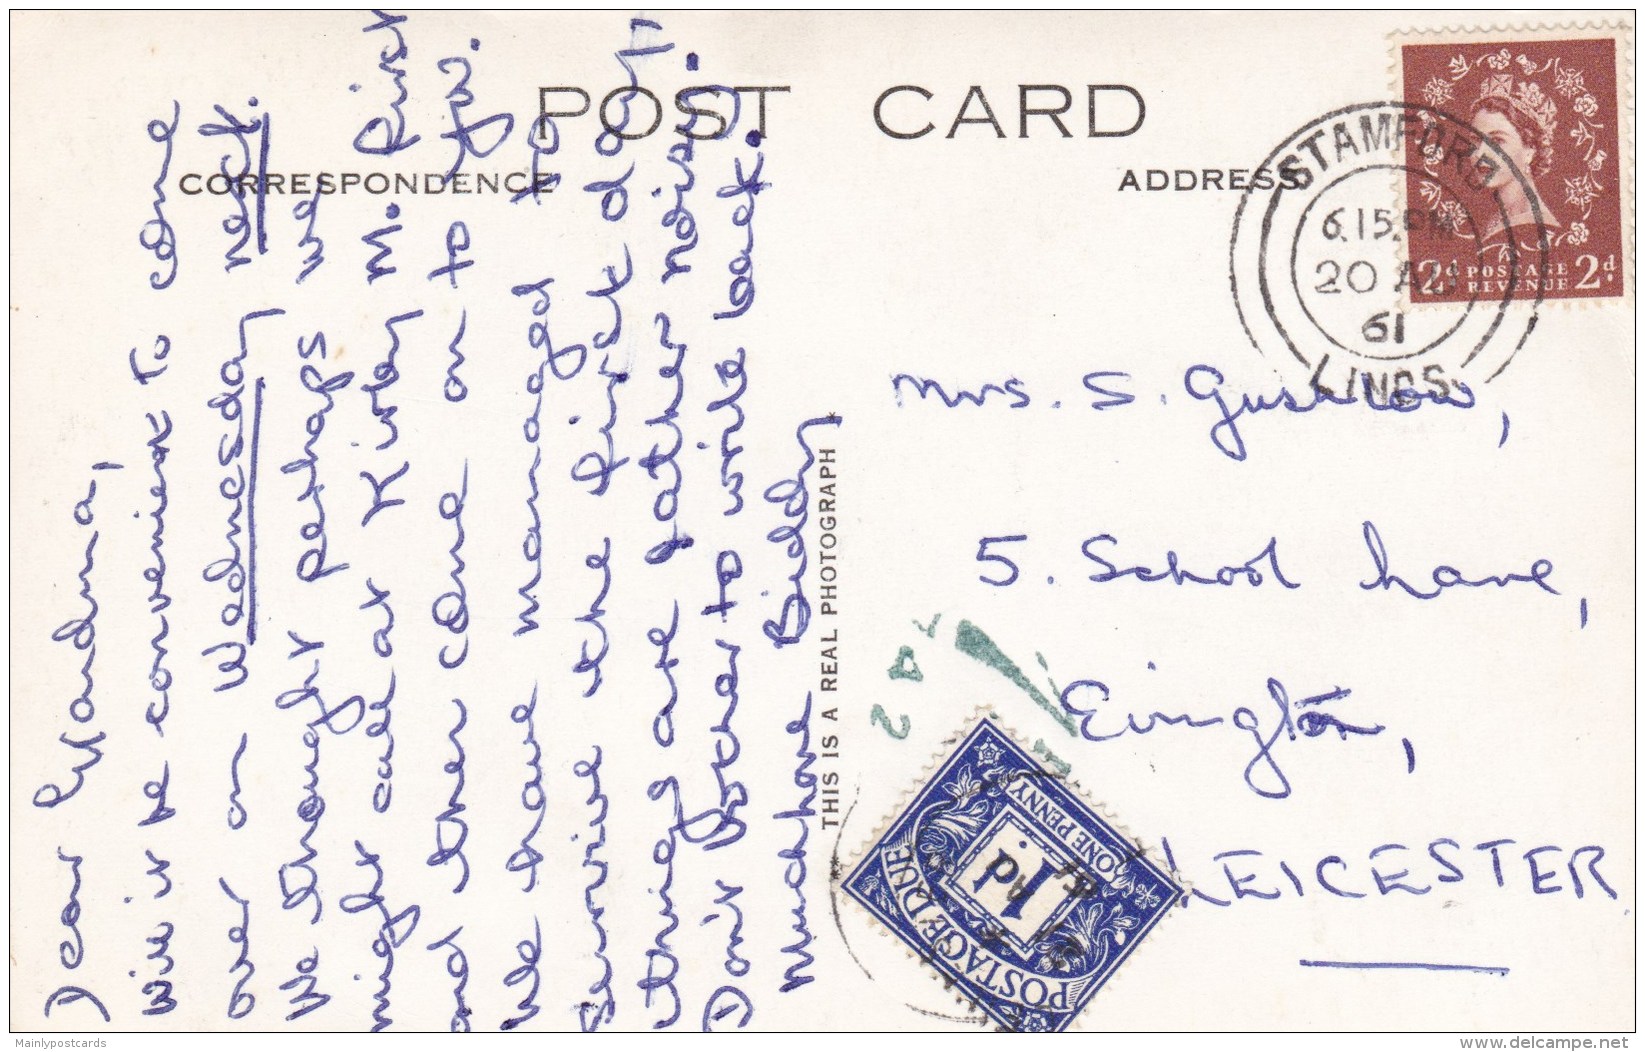 POST CARD
CORRESPONDENCE
ADDRESS
Dear Grandma,
Will it be convenient to come
over on Wednesday next.
We thought perhaps we
might call at Kirby M. first
and then come on to you.
We have managed to
service the first day,
things are rather noisy.
Don't bother to write back.
Much love Biddy
THIS IS A REAL PHOTOGRAPH
STAMFORD
6.15 PM
20 AU
61
LINCS
2d POSTAGE REVENUE 2d
Mrs. S.
5. School Lane,
Evington,
LEICESTER
POSTAGE DUE
1d
ONE PENNY
Mainlypostcards
delcampe.net